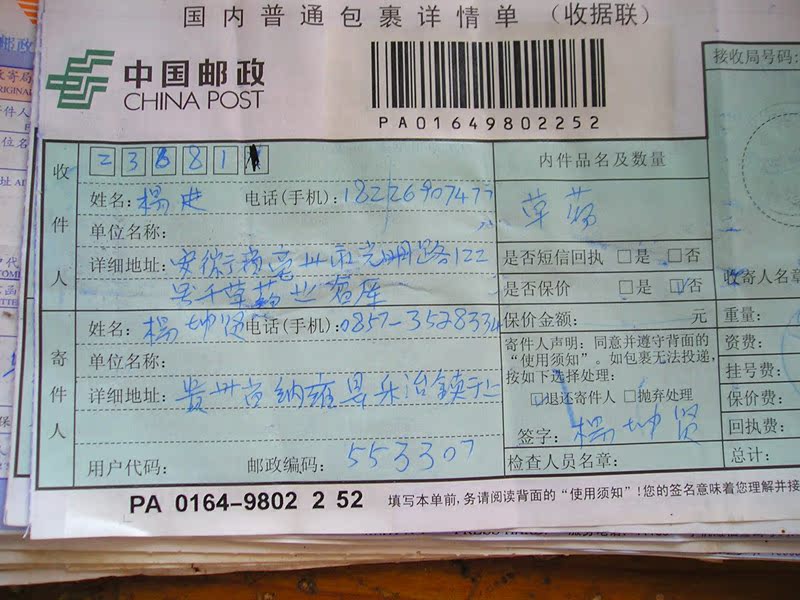 国内普通包裹详情单 (收据联)
中国邮政
CHINA POST
PA01649802252
接收局号码:
收件人
2 3 8 8 1
姓名: 杨 电话(手机): 18226907477
单位名称:
详细地址: 安徽省亳州市光明路122
号千草药业
内件品名及数量
草药
是否短信回执 □是 □否
是否保价 □是 □否
收寄人名章
寄件人
姓名: 杨坤贤 电话(手机): 0857-3528334
单位名称:
详细地址: 贵州省纳雍县乐治镇
用户代码:
邮政编码: 553307
保价金额: 元
寄件人声明: 同意并遵守背面的
“使用须知”。如包裹无法投递,
按如下选择处理:
□退还寄件人 □抛弃处理
签字: 杨坤贤
检查人员名章:
重量:
资费:
挂号费:
保价费:
回执费:
总计:
PA 0164-9802 2 52
填写本单前,务请阅读背面的“使用须知”!您的签名意味着您理解并接